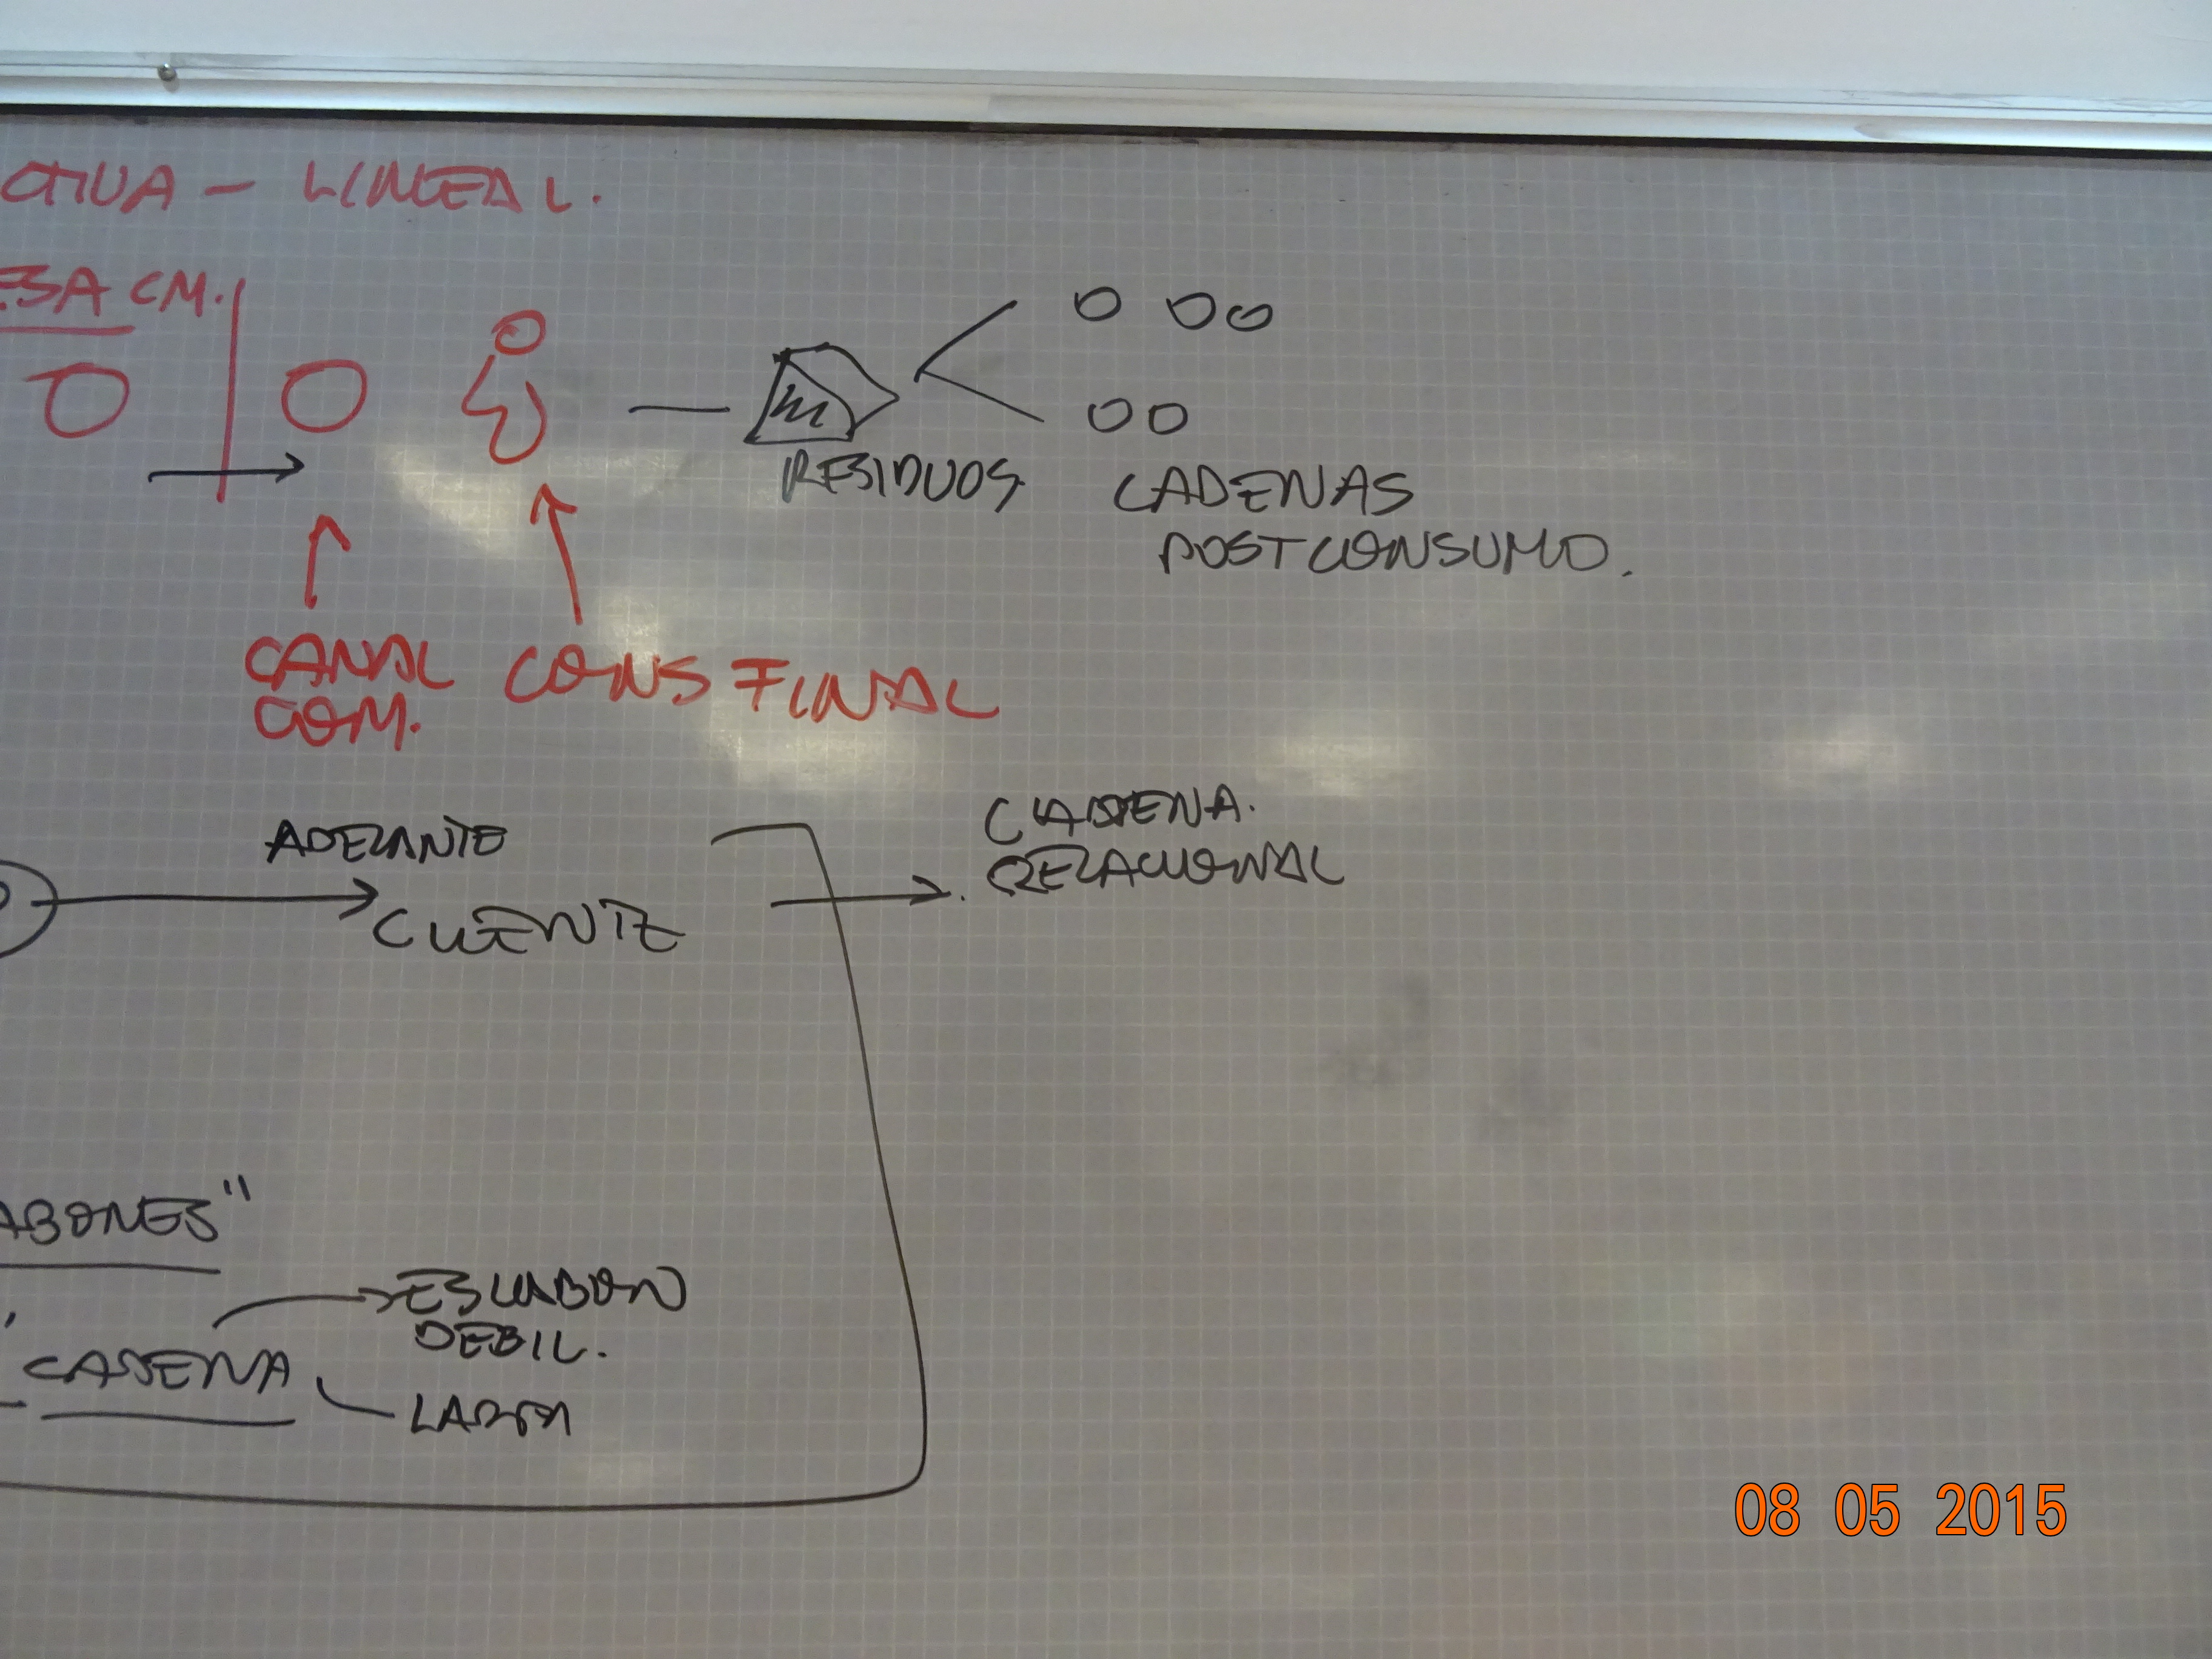 CTIVA - LINEAL.
ESA CM.
RESIDUOS
CADENAS
POSTCONSUMO.
CANAL
COM.
CONS FINAL
ADELANTE
CLIENTE
CADENA.
RELACIONAL
ABONES"
ESLABON
DEBIL.
CADENA
LARGA
08 05 2015